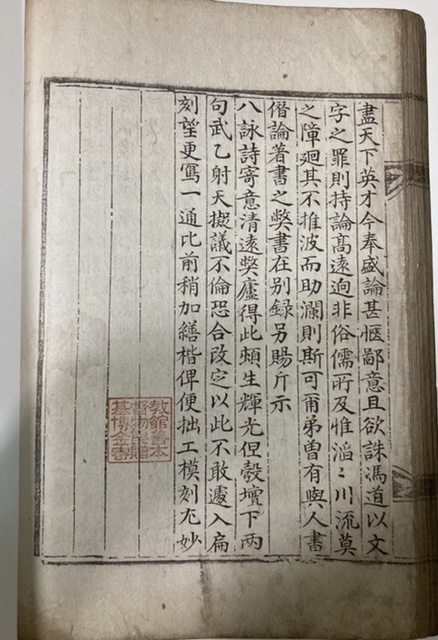 盡天下英才今奉盛論甚愜鄙意且欲誅馮道以文
字之罪則持論髙遠逈非俗儒所及惟滔〻川流莫
之障廻其不推波而助瀾則斯可爾弟曾有與人書
偹論著書之獘書在别録另賜斤示
八詠詩寄意清遠獘廬得此頓生輝光但壇下两
句武乙射天擬議不倫恐合改定以此不敢遽入扁
刻望更寫一通比前稍加繕楷俾便拙工模刻尤妙